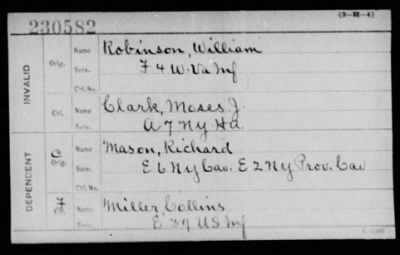 230582
(3-H-4)
INVALID
Orig.
Name Robinson, William
Serv. F 4 W. Va Inf
Ctf. No.
Ctf.
Name Clark, Moses J.
Serv. A 7 Ny Ha.
DEPENDENT
Orig.
Name Mason, Richard
Serv. E 6 Ny Cav. E 2 Ny Prov. Cav
Ctf. No.
Name Miller, Collins
Serv. E 39 US Inf